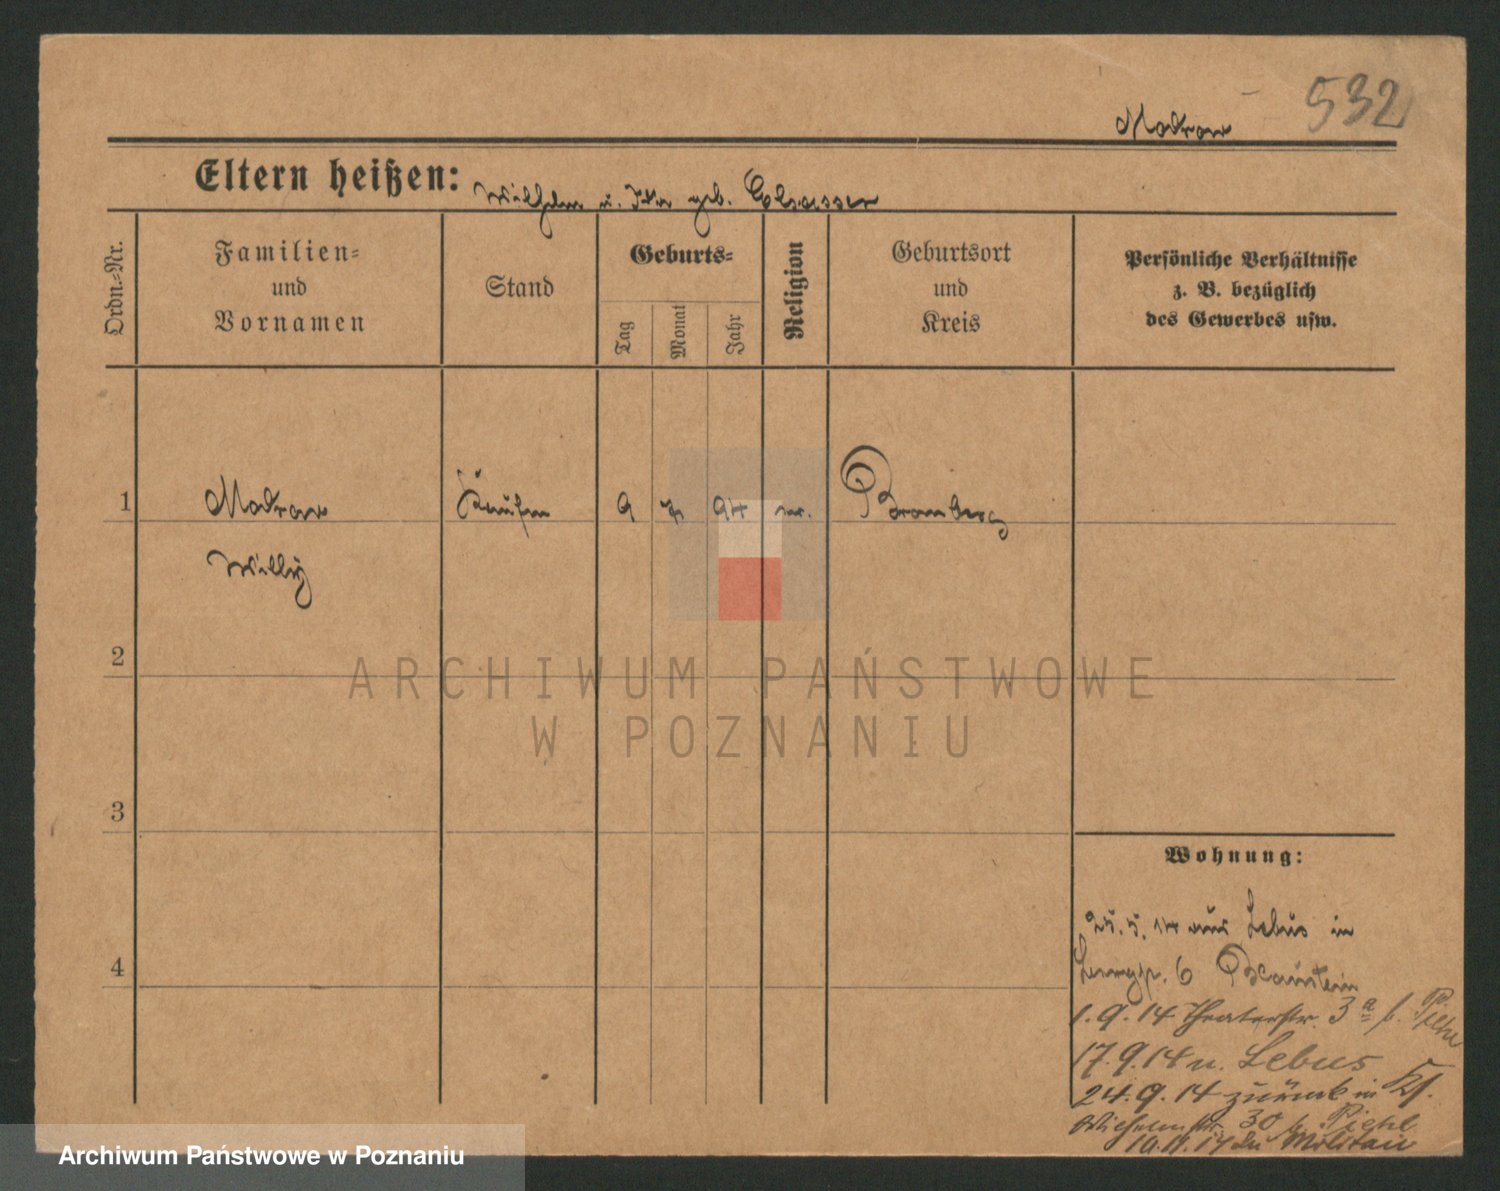 532
Matrow
Eltern heißen: Wilhelm u. Ida geb. Elsasser
Ordn.-Nr.
Familien-
und
Vornamen
Stand
Geburts-
Tag
Monat
Jahr
Religion
Geburtsort
und
Kreis
Persönliche Verhältnisse
z. B. bezüglich
des Gewerbes usw.
1 Matrow Kaufm 9 7 94 ev. Bromberg
Willy
2
3
4
Wohnung:
25. 5. 14 aus Lebus in
6
1. 9. 14 Theaterstr. 3a b. Piehl
17. 9. 14 n. Lebus
24. 9. 14 zurück in
30 b. Piehl
10. 11. 14 zu Militair
ARCHIWUM PAŃSTWOWE
W POZNANIU
Archiwum Państwowe w Poznaniu